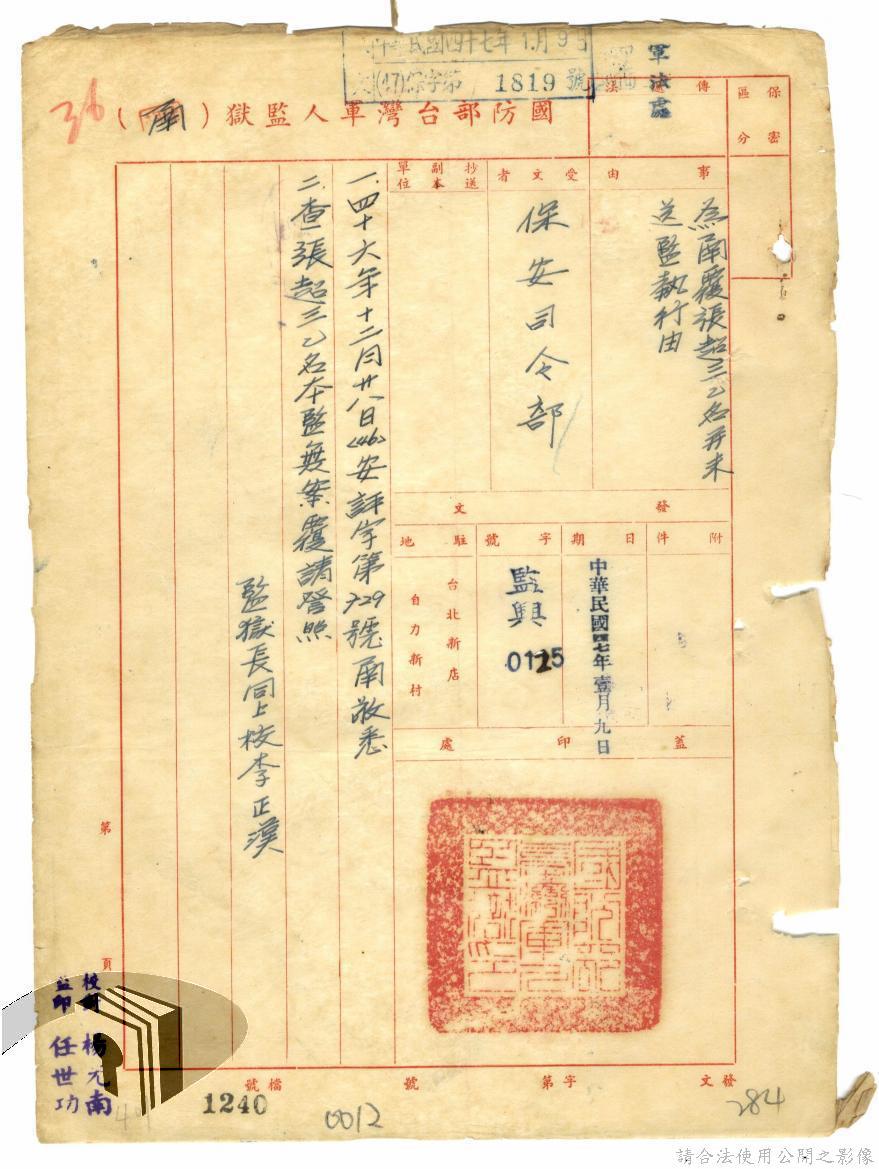 中華民國四十七年1月9日
(47)保字第1819號
軍法處
36
國防部台灣軍人監獄(函)
保密
區分
傳
法
事由
為函覆張超三乙名并未
送監執行由
受文者
保安司令部
抄送
副本
單位
發文
附件
日期
中華民國四七年壹月九日
字號
監興
0125
駐地
台北新店
自力新村
蓋印處
國防部台灣軍人監獄印
一、四十六年十二月廿八日(46)安評字第729號函敬悉
二、查張超三乙名本監無案覆請登照
監獄長同上校李正漢
第
頁
校對 楊元南
監印 任世功
發文
字第
號
檔號
1240
0012
284
請合法使用公開之影像